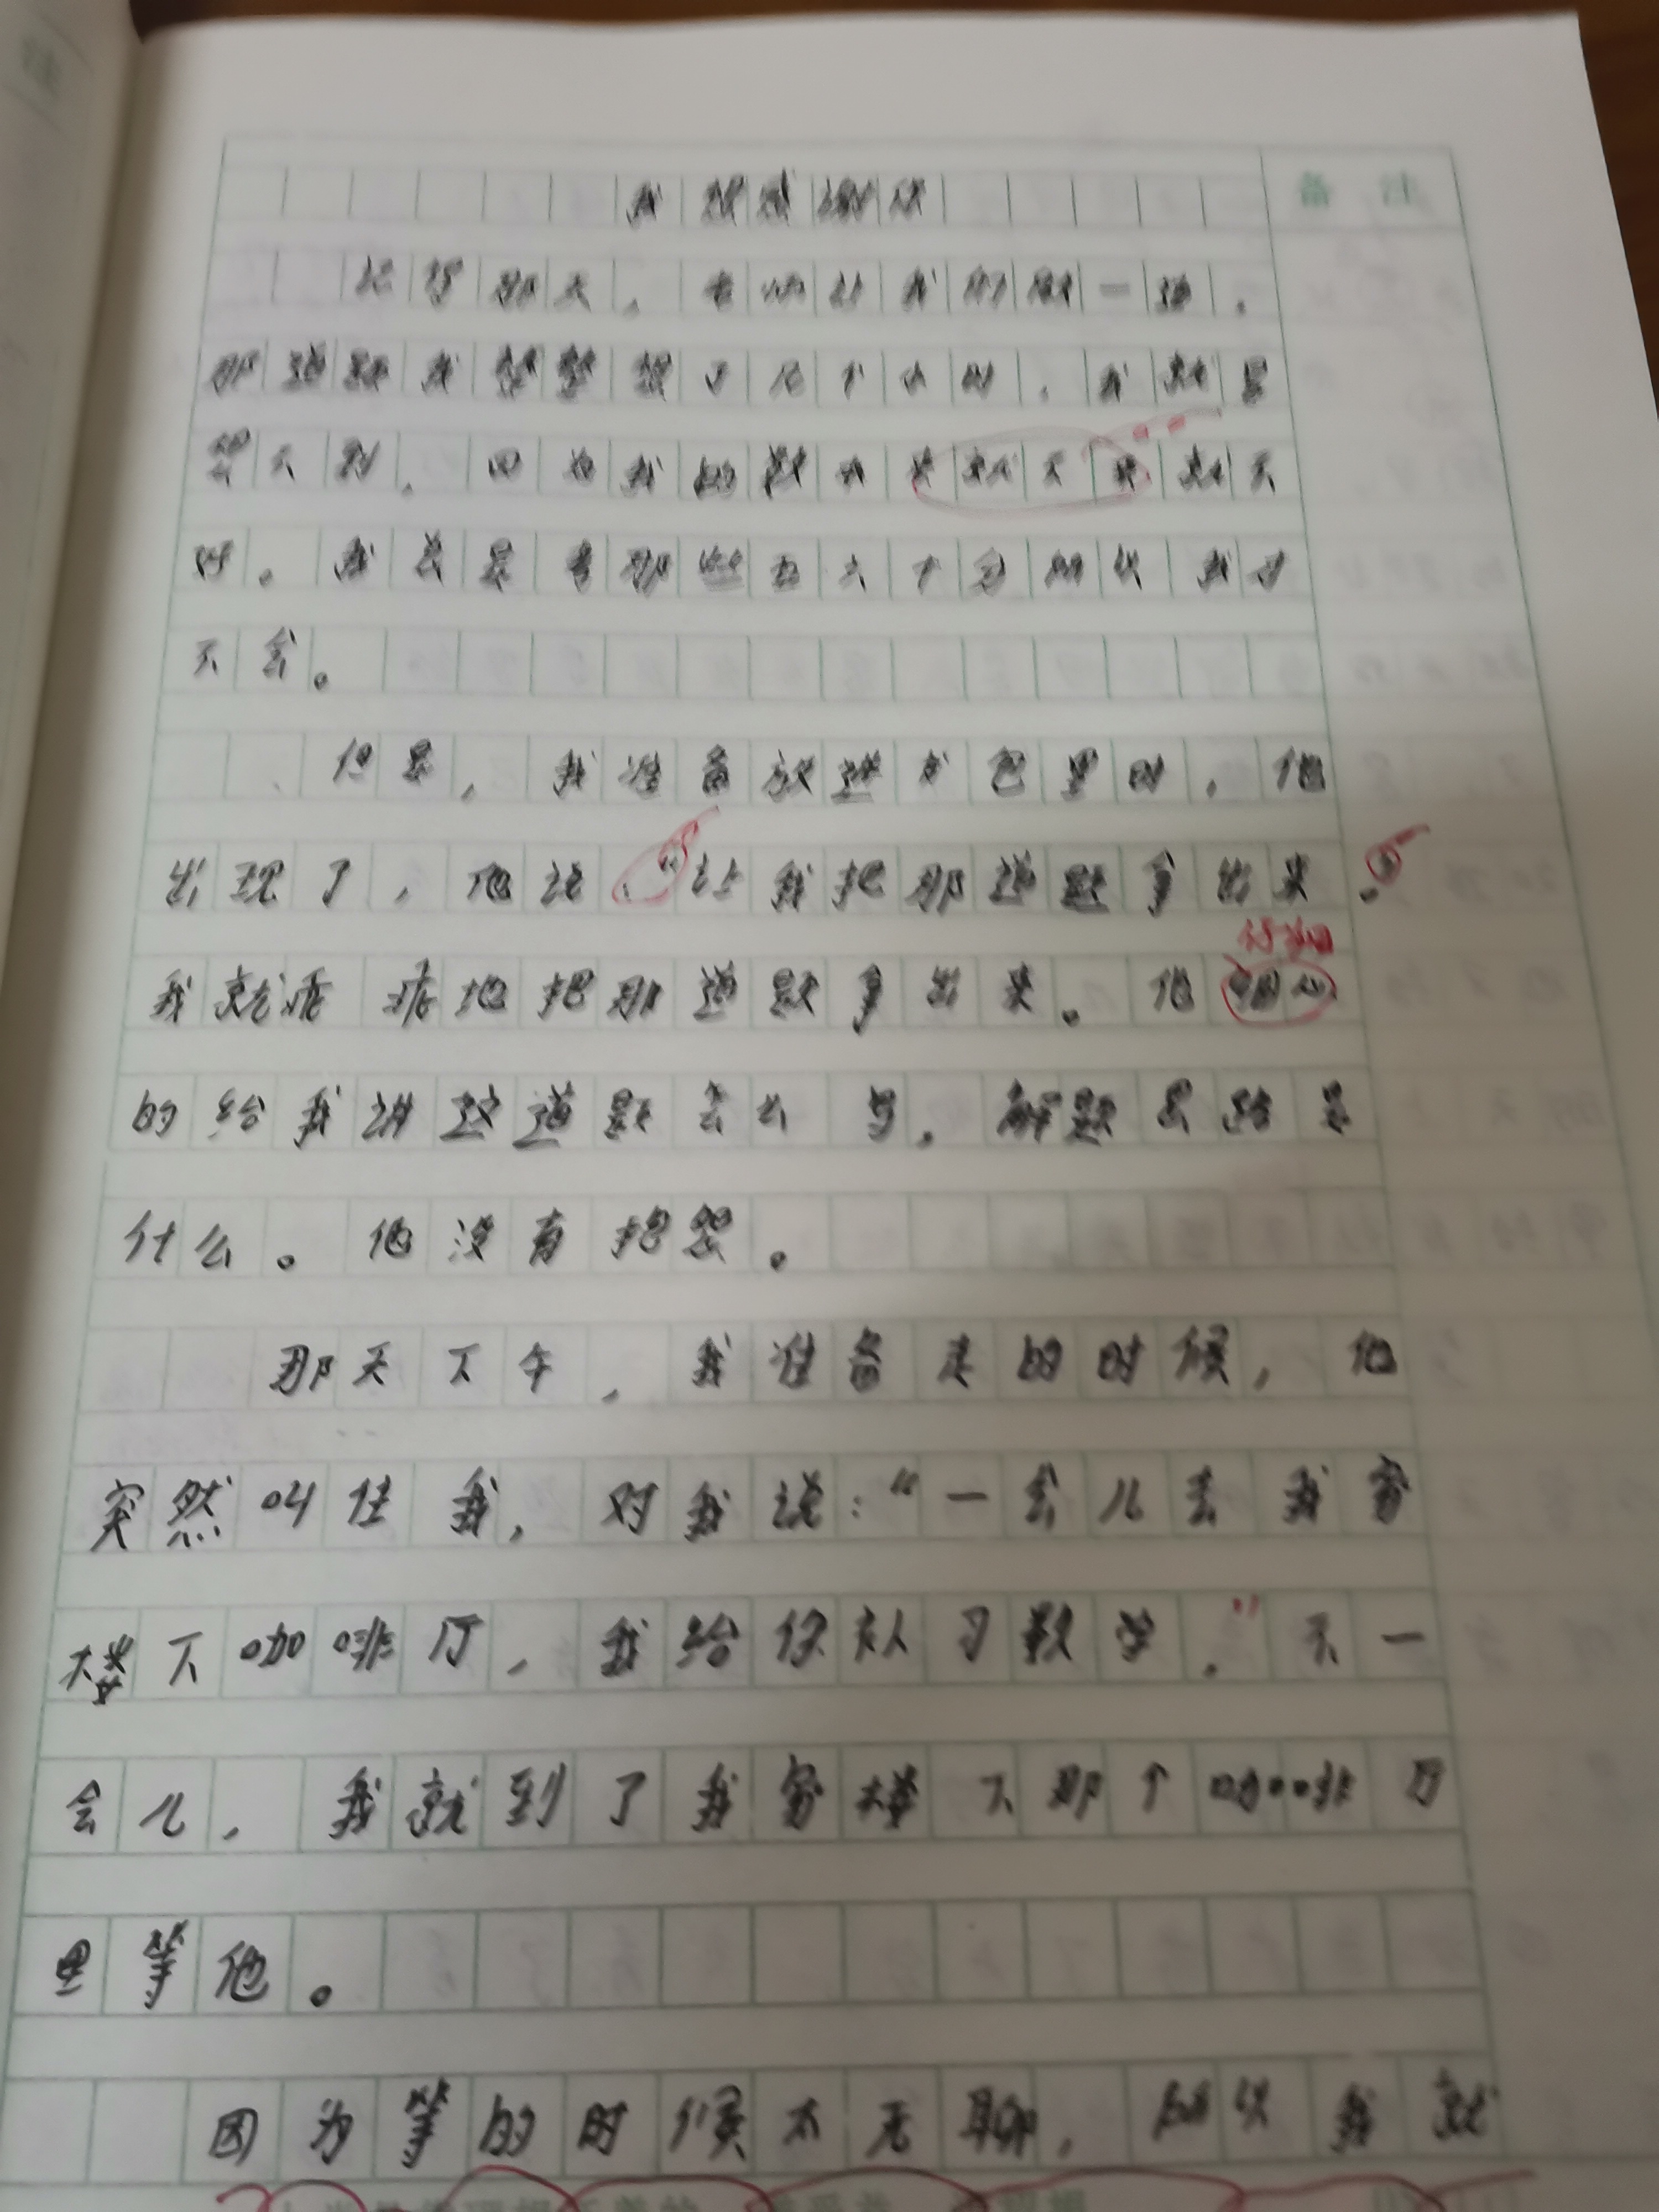 我想感谢你
记得那天，老师让我们做一道，
那道题我整整想了几个小时，我就是
想不到，因为我的数学 就不 就不
好。我总是考那些五六十分所以我才
不会。
但是，我准备放进书包里时，他
出现了，他说，“让我把那道题拿出来。
我就乖乖地把那道题拿出来。他细心
的给我讲这道题怎么写，解题思路是
什么。他没有抱怨。
那天下午，我准备走的时候，他
突然叫住我，对我说：“一会儿去我家
楼下咖啡厅，我给你补习数学。”不一
会儿，我就到了我家楼下那个咖啡厅
里等他。
因为等的时候太无聊，所以我就